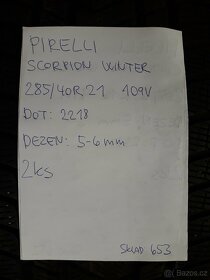 PIRELLI
SCORPION WINTER
285/40R,21 109V
DOT: 2218
DEZEN: 5-6mm
2ks
SKLAD 653
Bazoš.cz